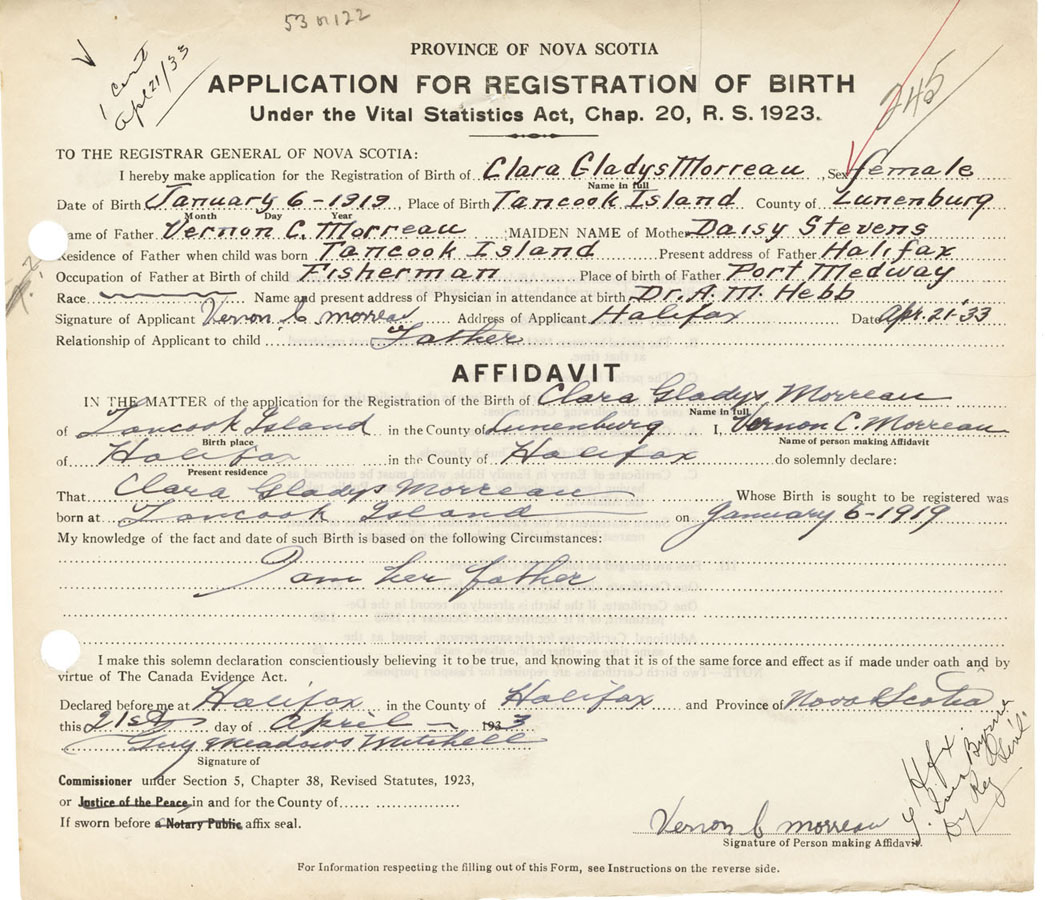 53 n 122
1 Cert
Apl 21/33
PROVINCE OF NOVA SCOTIA
APPLICATION FOR REGISTRATION OF BIRTH
245
Under the Vital Statistics Act, Chap. 20, R. S. 1923.
TO THE REGISTRAR GENERAL OF NOVA SCOTIA:
I hereby make application for the Registration of Birth of Clara Gladys Morreau, Sex female
Name in full
Date of Birth January 6-1919, Place of Birth Tancook Island County of Lunenburg
Month Day Year
Name of Father Vernon C. Morreau MAIDEN NAME of Mother Daisy Stevens
Residence of Father when child was born Tancook Island Present address of Father Halifax
Occupation of Father at Birth of child Fisherman Place of birth of Father Port Medway
Race Name and present address of Physician in attendance at birth Dr. A. M. Hebb
Signature of Applicant Vernon C Morreau Address of Applicant Halifax Date Apr. 21-33
Relationship of Applicant to child Father
AFFIDAVIT
IN THE MATTER of the application for the Registration of the Birth of Clara Gladys Morreau
Name in full
of Tancook Island in the County of Lunenburg I, Vernon C. Morreau
Birth place Name of person making Affidavit
of Halifax in the County of Halifax do solemnly declare:
Present residence
That Clara Gladys Morreau Whose Birth is sought to be registered was
born at Tancook Island on January 6-1919
My knowledge of the fact and date of such Birth is based on the following Circumstances:
I am her father
I make this solemn declaration conscientiously believing it to be true, and knowing that it is of the same force and effect as if made under oath and by
virtue of The Canada Evidence Act.
Declared before me at Halifax in the County of Halifax and Province of Nova Scotia
this 21st day of April 1933
Guy Meadows Mitchell
Signature of
Commissioner under Section 5, Chapter 38, Revised Statutes, 1923,
or Justice of the Peace in and for the County of
If sworn before a Notary Public affix seal.
Hfx.
Byrne
Dy Reg
Vernon C Morreau
Signature of Person making Affidavit.
For Information respecting the filling out of this Form, see Instructions on the reverse side.